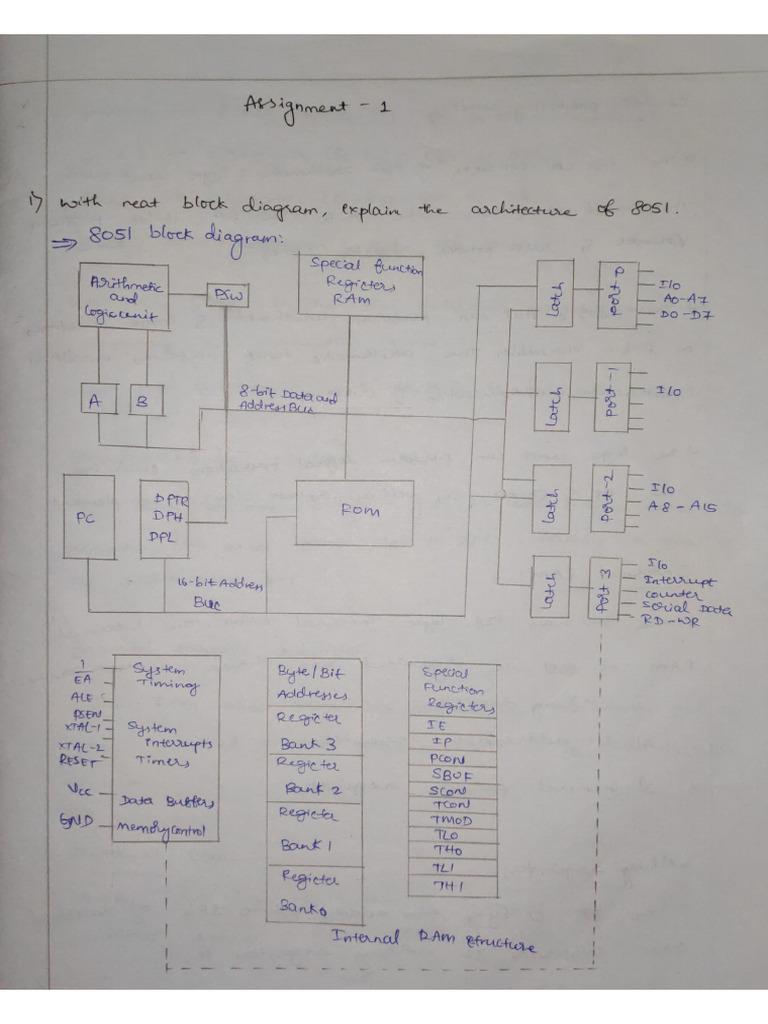 Assignment - 1
1) with neat block diagram, explain the architecture of 8051.
⇒ 8051 block diagram:
Arithmetic
and
Logic unit
PSW
Special function
Registers
RAM
Latch
Port-0
I/O
A0-A7
D0-D7
A
B
8-bit Data and
Address Bus
Latch
Port-1
I/O
PC
DPTR
DPH
DPL
ROM
Latch
Port-2
I/O
A8-A15
16-bit Address
Bus
Latch
Port 3
I/O
Interrupt
counter
Serial Data
RD-WR
EA
ALE
PSEN
XTAL-1
XTAL-2
RESET
Vcc
GND
System
Timing
System
interrupts
Timers
Data Buffers
Memory control
Byte/Bit
Addresses
Register
Bank 3
Register
Bank 2
Register
Bank 1
Register
Bank 0
Special
Function
Registers
IE
IP
PCON
SBUF
SCON
TCON
TMOD
TL0
TH0
TL1
TH1
Internal RAM structure